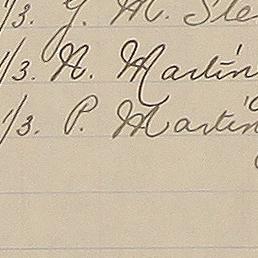 1/3. G. M. Ste
1/3. N. Martin
1/3. P. Martin